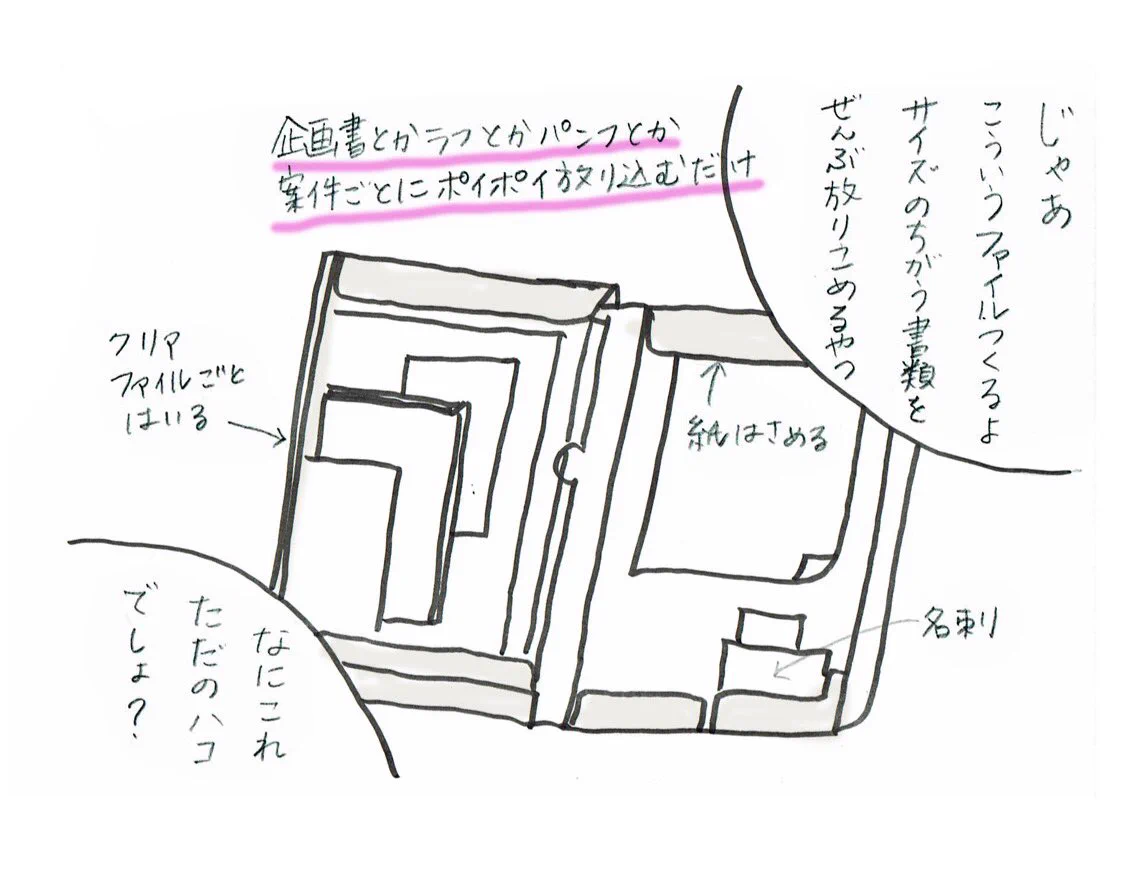 じゃあ
こういうファイルつくるよ
サイズのちがう書類を
ぜんぶ放りこめるやつ
企画書とかラフとかパンフとか
案件ごとにポイポイ放り込むだけ
クリア
ファイルごと
はいる
紙はさめる
名刺
なにこれ
ただのハコ
でしょ？